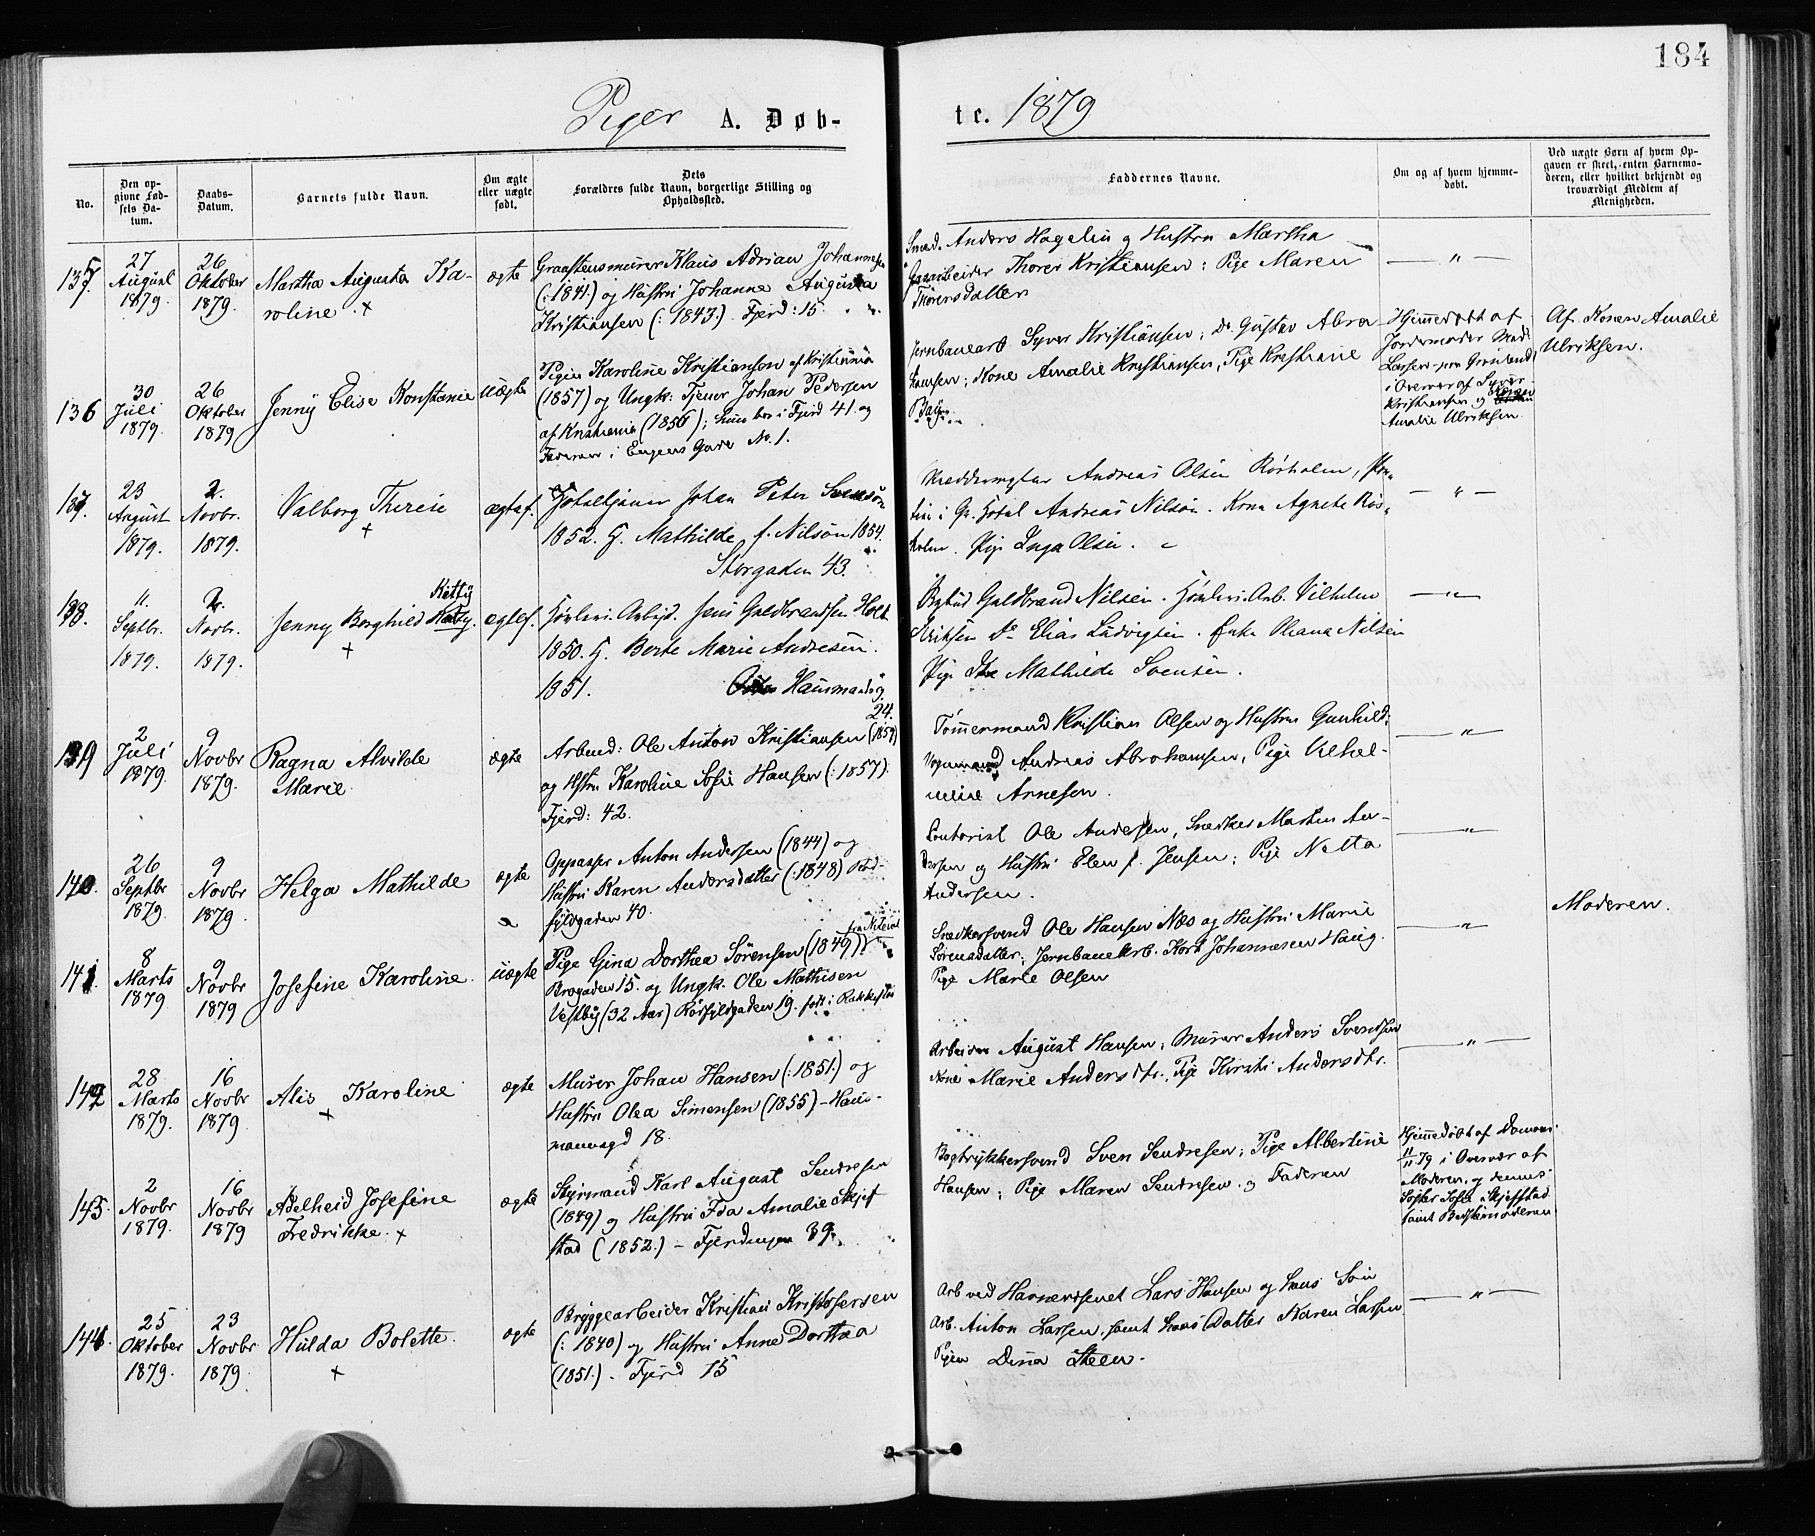 184
Piger A. Døb-
te. 1879
No.
Den op-
givne Fød-
sels Da-
tum.
Daabs-
Datum.
Barnets fulde Navn.
Om ægte
eller uægte
født.
Dets
Forældres fulde Navn, borgerlige Stilling og
Opholdssted.
Faddernes Navne.
Om og af hvem hjemme-
døbt.
Ved uægte Børn af hvem Op-
gaven er skeet, enten Barnemo-
deren, eller hvilket bekjendt og
troværdigt Medlem af
Menigheden.
135.
27
August
1879.
26
Oktober
1879.
Martha Augusta Ka-
roline. +
ægte
Graastensmurer Klaus Adrian Johannesen
(: 1841.) og Hustru Johanne Augusta
Kristiansen (: 1843.) Fjerd: 15.
Smed. Anders Hagelin og Hustru Martha
Gasarbeider Thorer Kristiansen; Pige Maren
Thorersdatter
— " —
136
30
Juli
1879.
26
Oktober
1879
Jenny Elise Konstanse
uægte
Pigen Karoline Kristianson af Kristiania
(1857) og Ungk: Tjener Johan Pedersen
af Kristiania (1856); hun bor i Fjerd 41. og
Faderen i Eugens Gade No. 1.
Jernbanearb Syver Kristiansen; Do Gustav Abra
hamsen; Kone Amalie Kristiansen, Pige Kristiane
Hjemmedøbt af
Jordemoder Mad.
Larsen paa Grønland
i Overvær af Syver
Kristiansen og Konen
Amalie Ulriksen.
Af. Konen Amalie
Ulriksen.
137.
23
August
1879.
2.
Novbr.
1879.
Valborg Therese
+
ægtef.
Hoteltjener Johan Peter Svensøn
1852. G. Mathilde f. Nilsøn 1854.
Storgaden 43.
Skreddermester Andreas Olsen Rosholm, Por-
tier i Gr. Hotel Andreas Nilsøn. Kone Agnete Ros-
holm. Pige Inga Olsen.
— " —
138.
11.
Septbr.
1879.
2.
Novbr.
1879.
Ketty
Jenny Borghild
+
ægtef.
Jens Guldbrandsen Holt
1850. G. Berte Marie Andresen.
1851. Hausmandsg.
24.
Guldbrand Nilsen. Arb. Vilhelm
Eriksen Do Elias Ludvigsen. Enke Oleana Nilsen
Pige Mathilde Svensen.
— " —
139
2
Juli
1879.
9
Novbr
1879.
Ragna Alvilde
Marie.
ægte
Arbeid: Ole Anton Kristiansen (1854)
og Hstru Karoline Sofie Hansen (: 1857).
Fjerd: 42.
Tømmermand Kristian Olsen og Hustru Gunhild;
Vognmand Andreas Abrahamsen, Pige Vilhel-
mine Arnesen.
— " —
140.
26
Septbr
1879.
9
Novbr
1879.
Helga Mathilde
ægte
Oppasser Anton Andersen (1844) og
Hustru Karen Andersdatter (: 1848) Rød-
fyldgaden 40.
Kontorist Ole Andersen, Snedker Martin An-
dersen og Hustru Elen f. Jensen; Pige Netta
Andersen.
— " —
141
8
Marts
1879
9
Novbr
1879
Josefine Karoline.
uægte
Pige Gina Dorthea Sørensen (1849)
Brogaden 15. og Ungk. Ole Mathisen
Vestby (32 Aar) Rørfyldgaden 19. født i Rakkestad
Snedkersvend Ole Hansen Næs og Hustru Marie
Sørensdatter; Jernbanearb. Kort Johannesen Haug.
Pige Marie Olsen
— " —
Moderen.
142
28
Marts
1879.
16
Novbr
1879
Alis Karoline
+
ægte
Murer Johan Hansen (: 1851.) og
Hustru Olea Simensen (1855) - Haus-
mannsgd 18.
Arbeider August Hansen; Murer Anders Svendsen
Kone Marie Andersdtr., Pige Kirsti Andersdtr.
— " —
143.
2
Novbr
1879.
16
Novbr
1879
Adelheid Josefine
Fredrikke. +
ægte
Styrmand Karl August Sendresen
(1849) og Hustru Ida Amalie Skjef
stad (1852.) - Fjerdingen 39.
Bogtrykkersvend Sven Sendresen; Pige Albertine
Hansen; Pige Maren Sendresen og Faderen
Hjemmedøbt af
11/11 79 i Overvær af
Moderen, og dennes
Søster Sofie Skjefstad
samt Bedstemoderen
144.
25
Oktober
1879.
23
Novbr
1879
Hulda Bolette.
+
ægte
Bryggearbeider Kristian Kristofersen
(: 1840) og Hustru Anne Dorthea
(1851.) - Fjerd 15
Arb ved Havnevæsenet Lars Hansen og hans Søn
Arb. Anton Larsen, samt hans Datter Karen Larsen
Pigen Dina Steen.
— " —